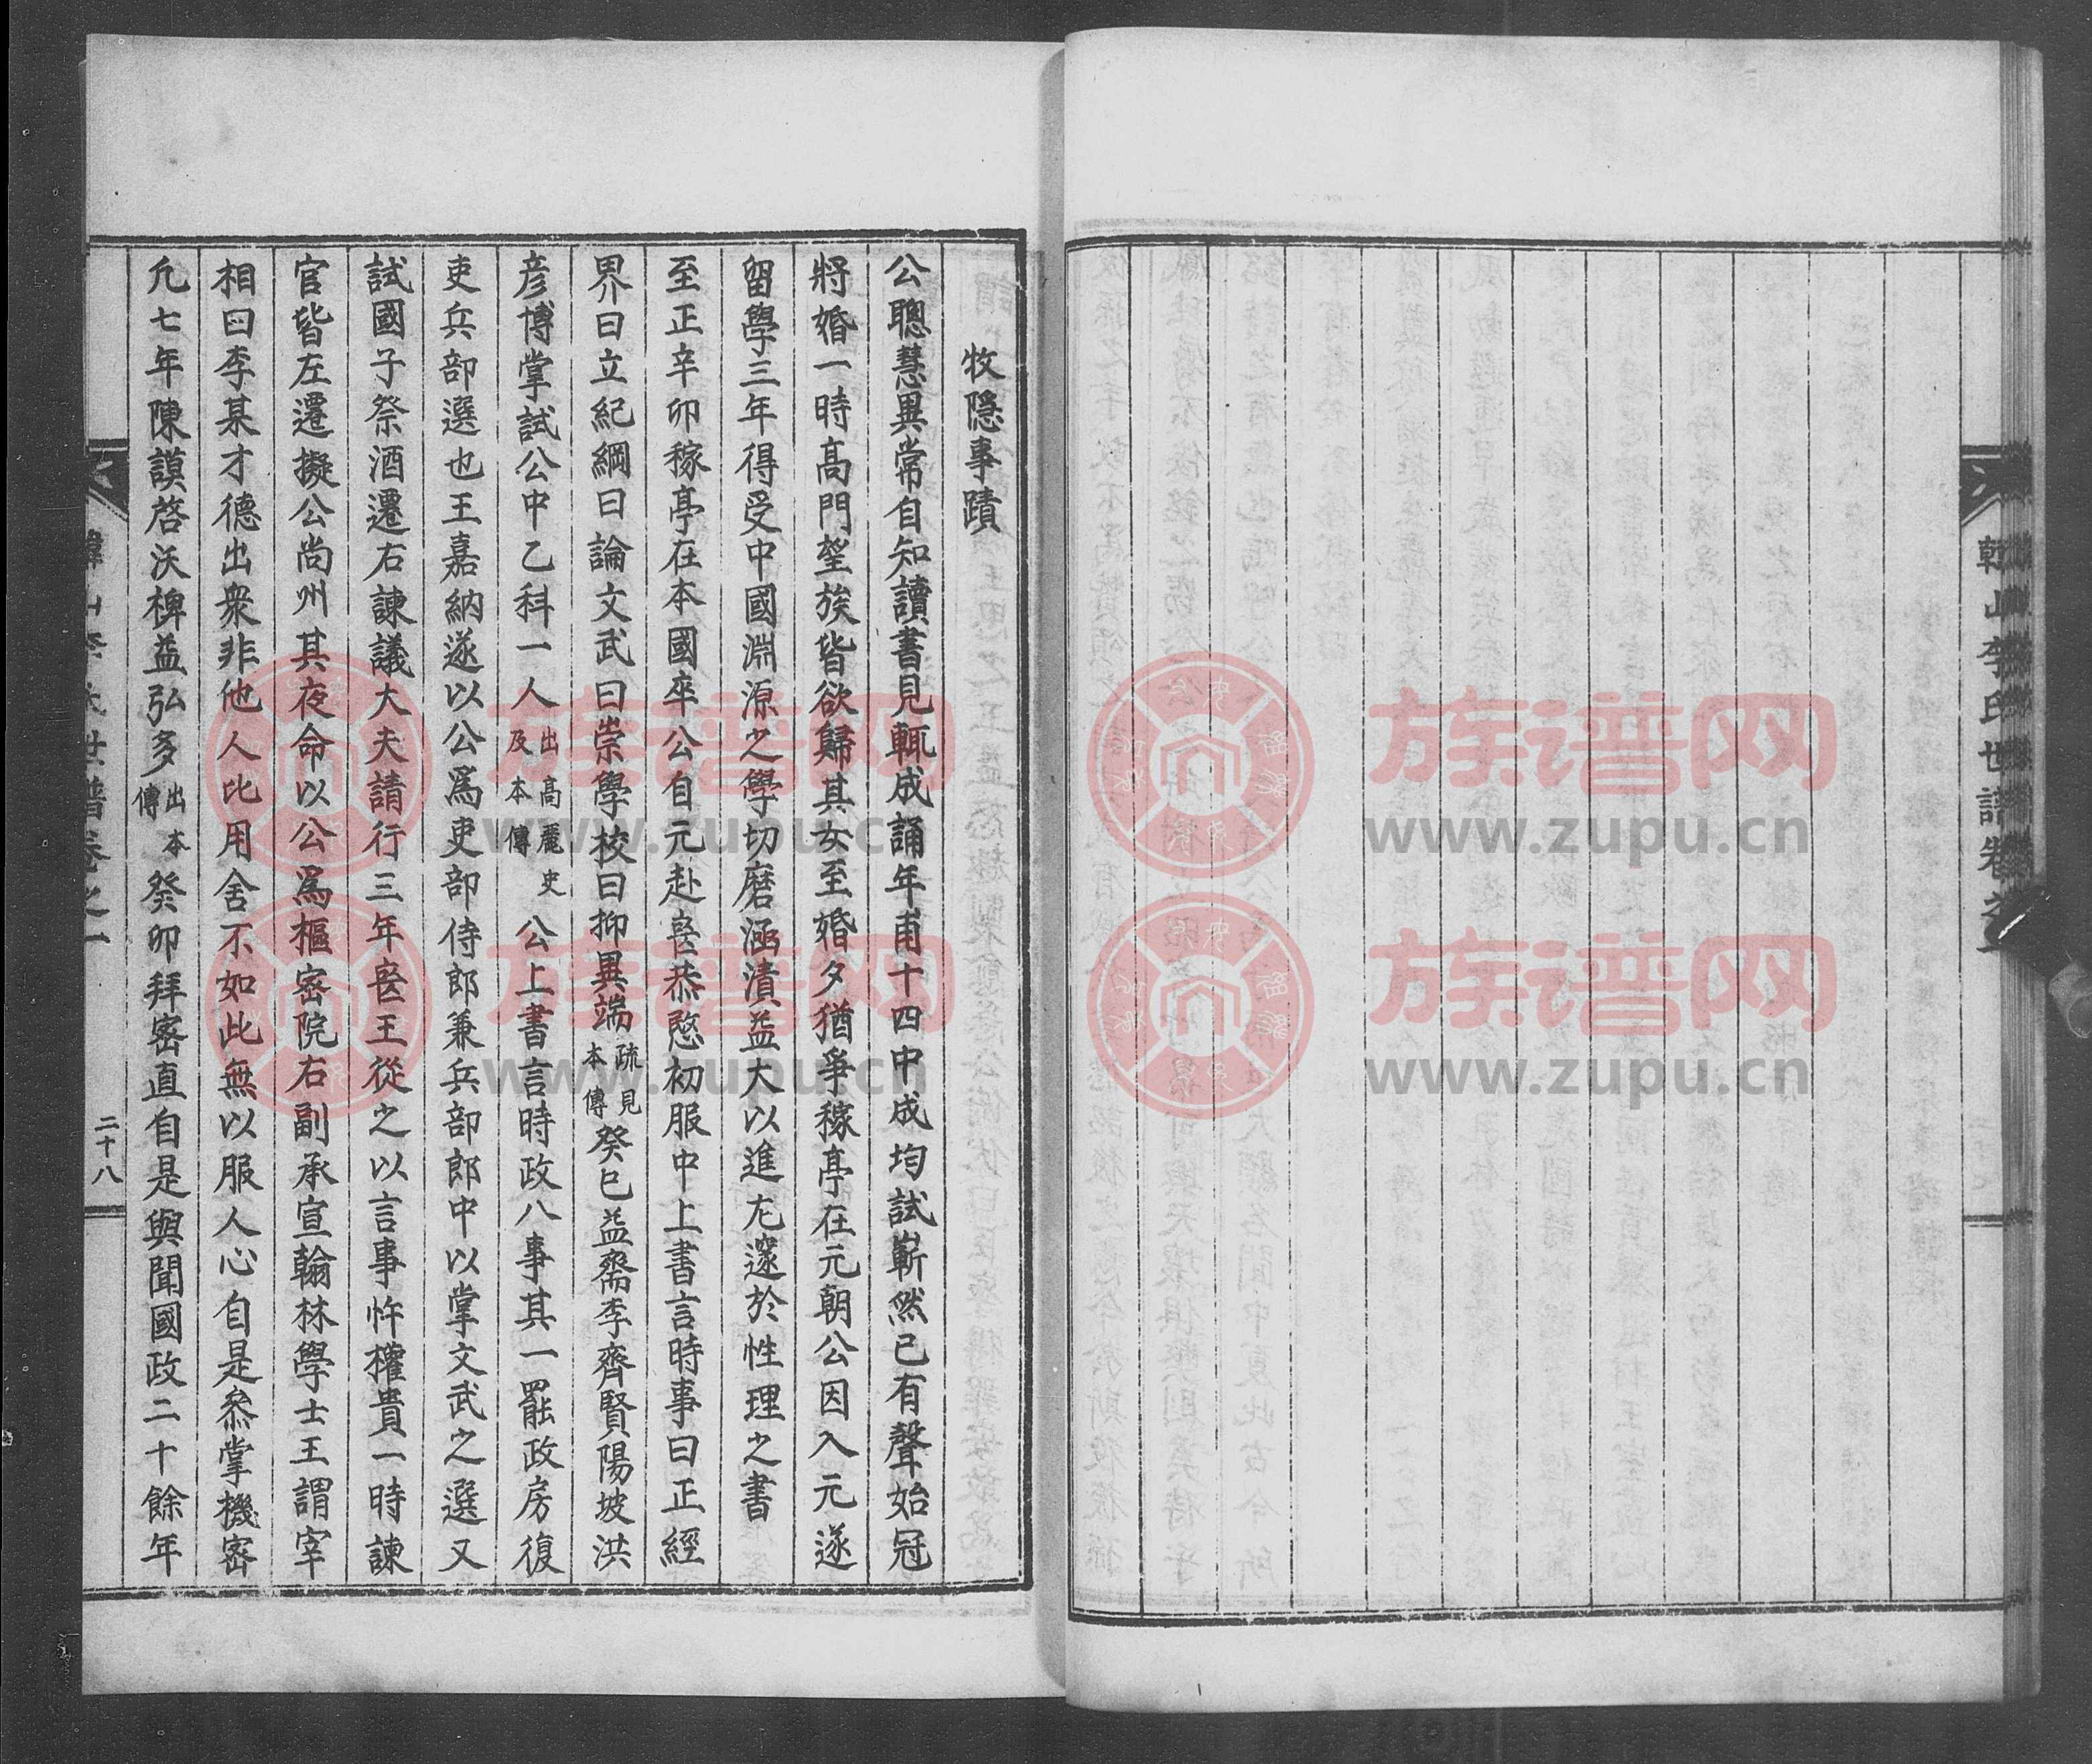 韓山李氏世譜卷之一
牧隱事蹟
公聰慧異常自知讀書見輒成誦年甫十四中成均試嶄然已有聲始冠
將婚一時高門望族皆欲歸其女至婚夕猶爭稼亭在元朝公因入元遂
留學三年得受中國淵源之學切磨涵漬益大以進尤邃於性理之書
至正辛卯稼亭在本國卒公自元赴喪恭愍初服中上書言時事曰正經
界曰立紀綱曰論文武曰崇學校曰抑異端疏見本傳癸巳益齋李齊賢陽坡洪
彦博掌試公中乙科一人出高麗史及本傳公上書言時政八事其一罷政房復
吏兵部選也王嘉納遂以公爲吏部侍郎兼兵部郎中以掌文武之選又
試國子祭酒遷右諫議大夫請行三年喪王從之以言事忤權貴一時諫
官皆左遷擬公尚州其夜命以公爲樞密院右副承宣翰林學士王謂宰
相曰李某才德出衆非他人比用舍不如此無以服人心自是叅掌機密
凢七年陳謨啓沃裨益弘多出本傳癸卯拜密直自是與聞國政二十餘年
韓山李氏世譜卷之一
二十八
族谱网
www.zupu.cn
族谱网
www.zupu.cn
族谱网
www.zupu.cn
族谱网
www.zupu.cn